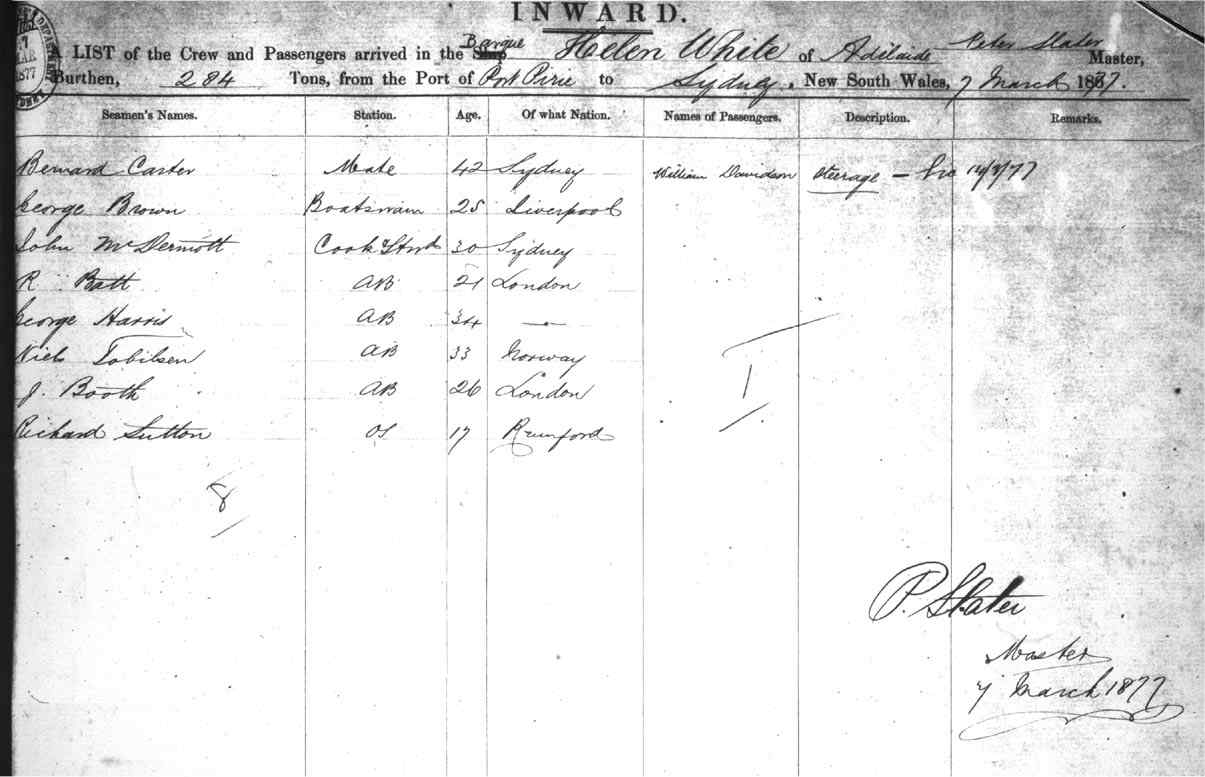 INWARD.
A LIST of the Crew and Passengers arrived in the Ship Barque Helen White of Adelaide Peter Slater Master,
Burthen, 284 Tons, from the Port of Port Pirie to Sydney, New South Wales, 7 March 1877.
7 MAR 1877
Seamen's Names. Station. Age. Of what Nation. Names of Passengers. Description. Remarks.
Bernard Carter Mate 42 Sydney William Davidson Steerage —
George Brown Boatswain 25 Liverpool
John McDermott Cook & Stwd 30 Sydney
R Batt AB 21 London
George Harris AB 34 —
Niels Tobilsen AB 33 Norway
J. Booth AB 26 London
Richard Sutton OS 17 Rumford
1
8
P. Slater
Master
7 March 1877